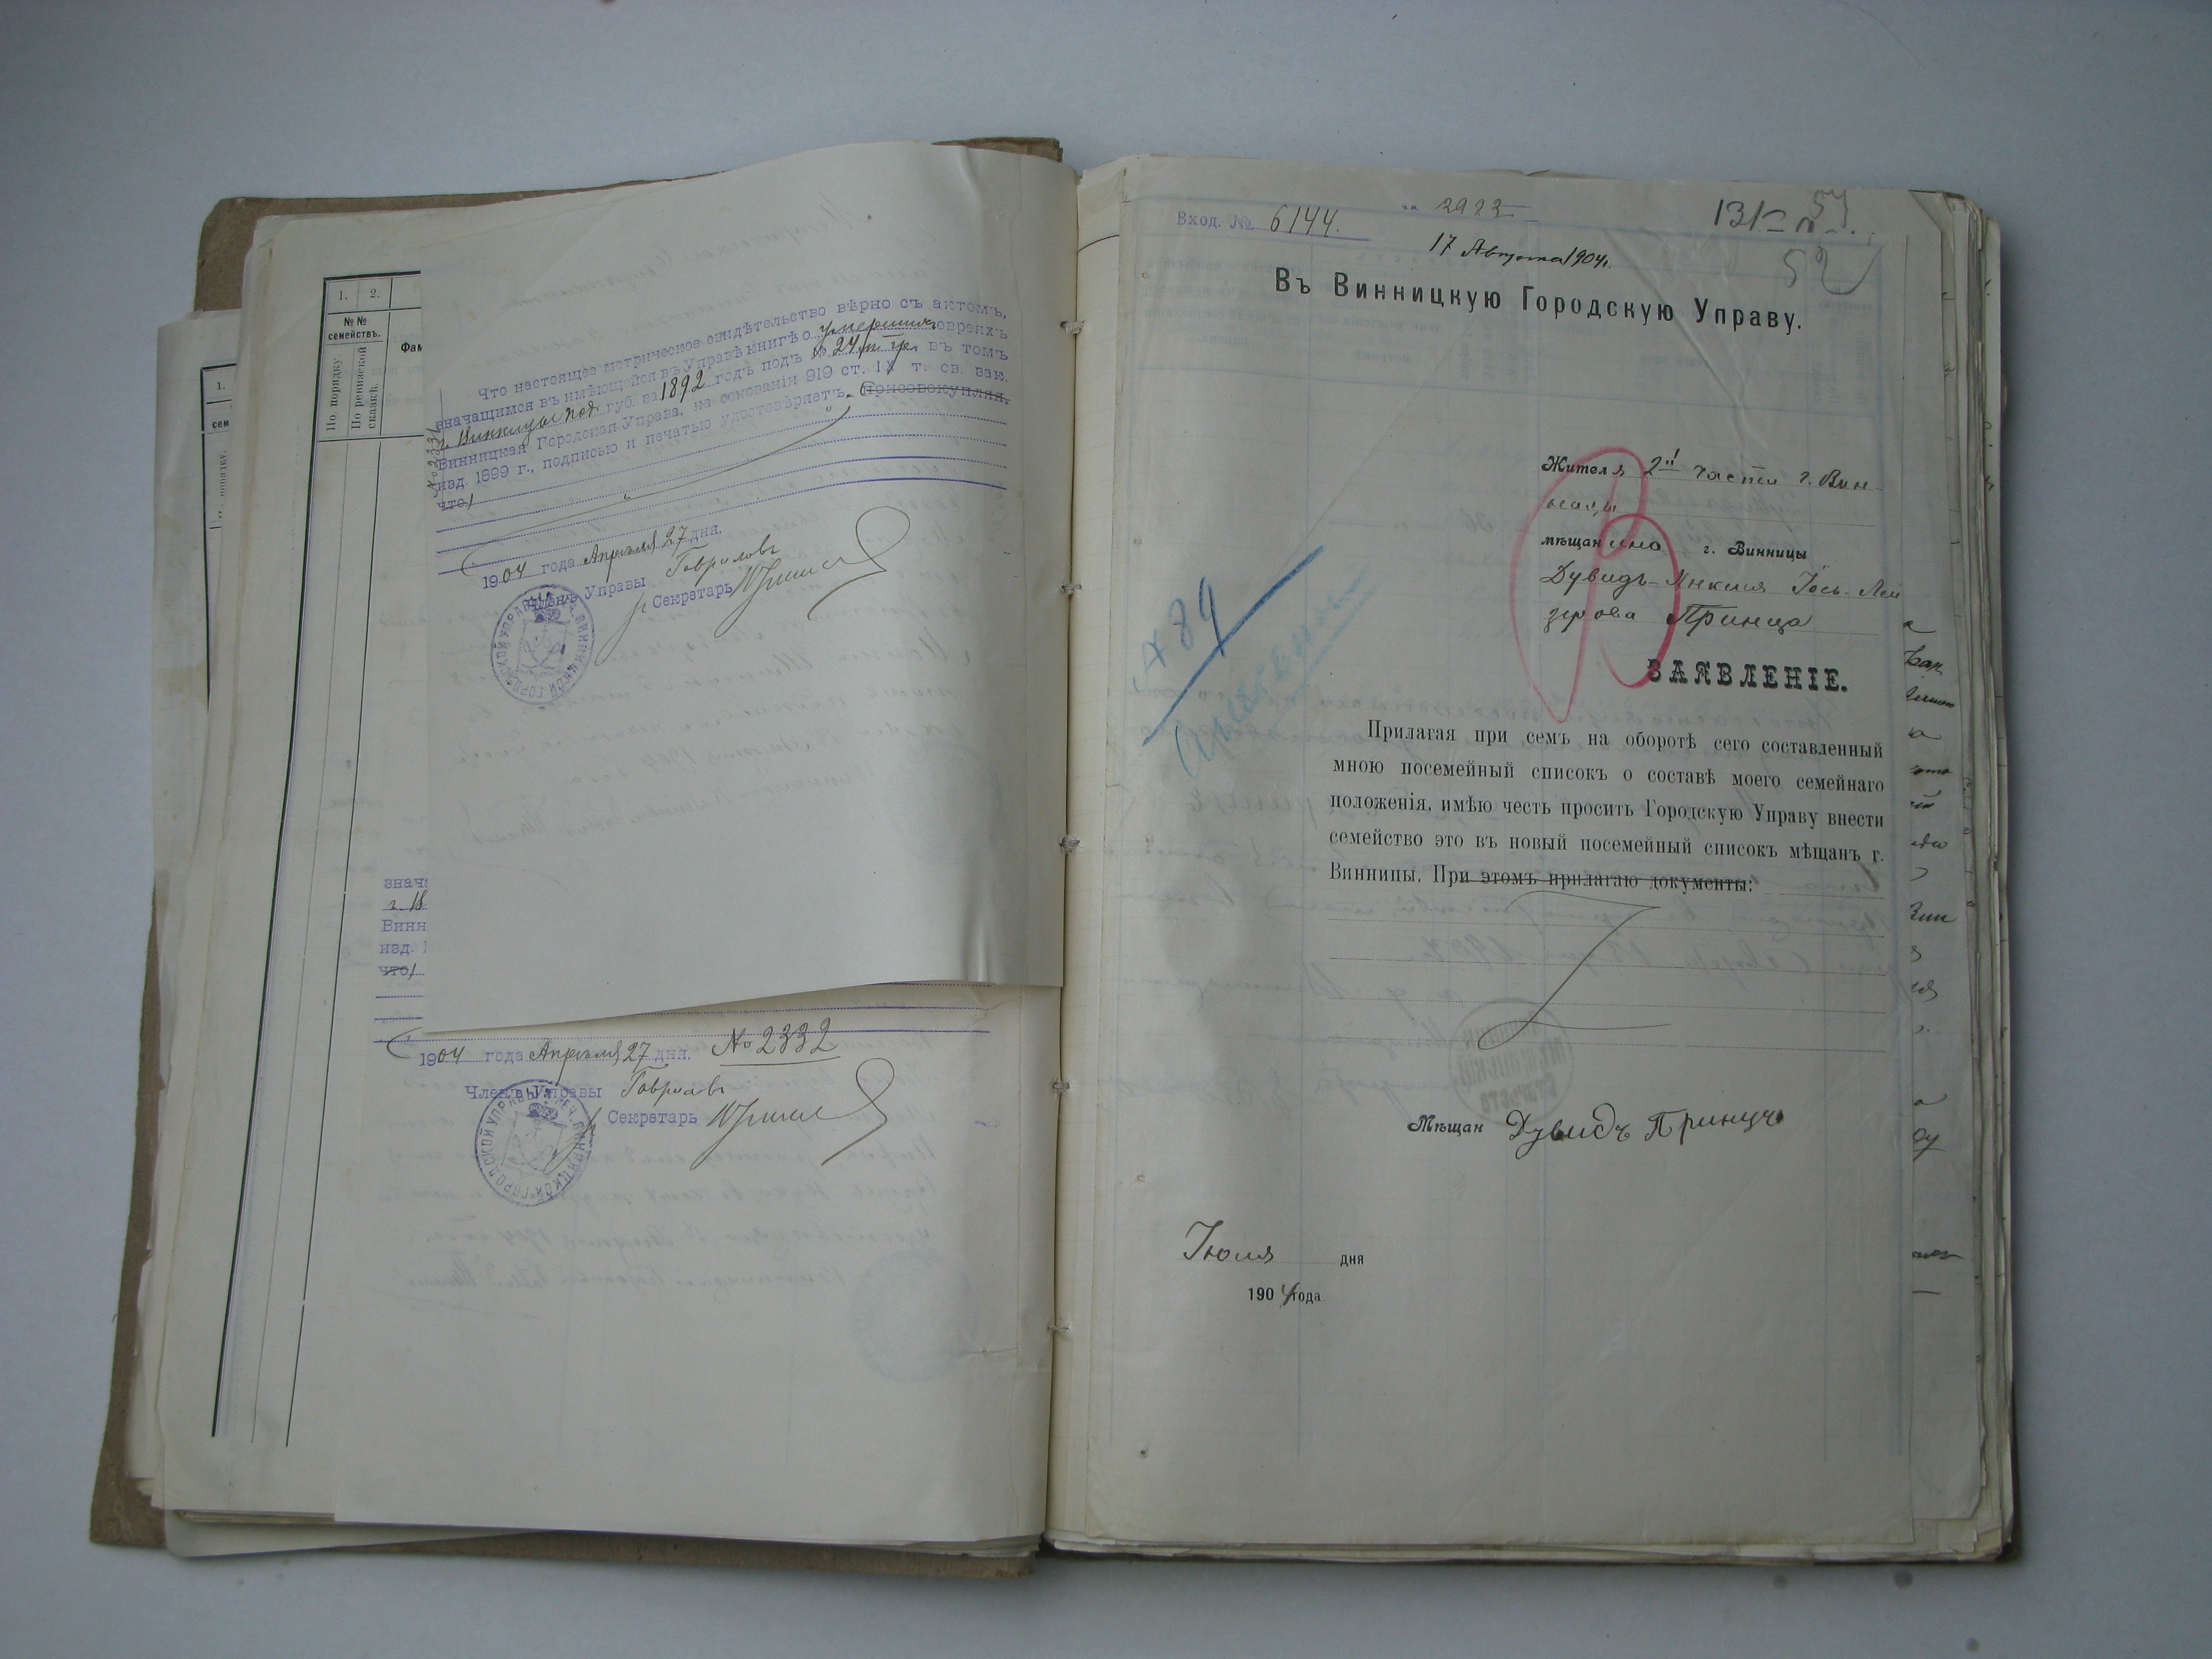 1.
сем
1. 2.
№№
семействъ.
По порядку.
По ревизской
сказкѣ.
Фам
Что настоящее метрическое свидѣтельство вѣрно съ актомъ,
значащимся въ имѣющейся въ Управѣ книгѣ о умершихъ евреяхъ
г. Винницы Под. губ. за 1892 годъ подъ № 24 м. гр. въ томъ
Винницкая Городская Управа, на основаніи 919 ст. IX т. св. зак.
изд. 1899 г., подписью и печатью удостовѣряетъ. Присовокупляя,
что
№2331
1904 года Апрѣля 27 дня.
Членъ Управы Гавриловъ
Секретарь
знач
г. В
Винн
изд. 1
что
1904 года Апрѣля 27 дня. №2332
Членъ Управы Гавриловъ
Секретарь
Вход. № 6144.
на 2922
131
52
17 Августа 1904г.
Въ Винницкую Городскую Управу.
Жителя 2й части г. Вин-
ницы
мѣщанина г. Винницы
Дувидъ-Янкеля Іось-Лей
зерова Принца
ЗАЯВЛЕНІЕ.
89
Прилагая при семъ на оборотѣ сего составленный
мною посемейный списокъ о составѣ моего семейнаго
положенія, имѣю честь просить Городскую Управу внести
семейство это въ новый посемейный списокъ мѣщанъ г.
Винницы. При этомъ прилагаю документы:
Мѣщан Дувидъ Принцъ
Іюля дня
1904 года.